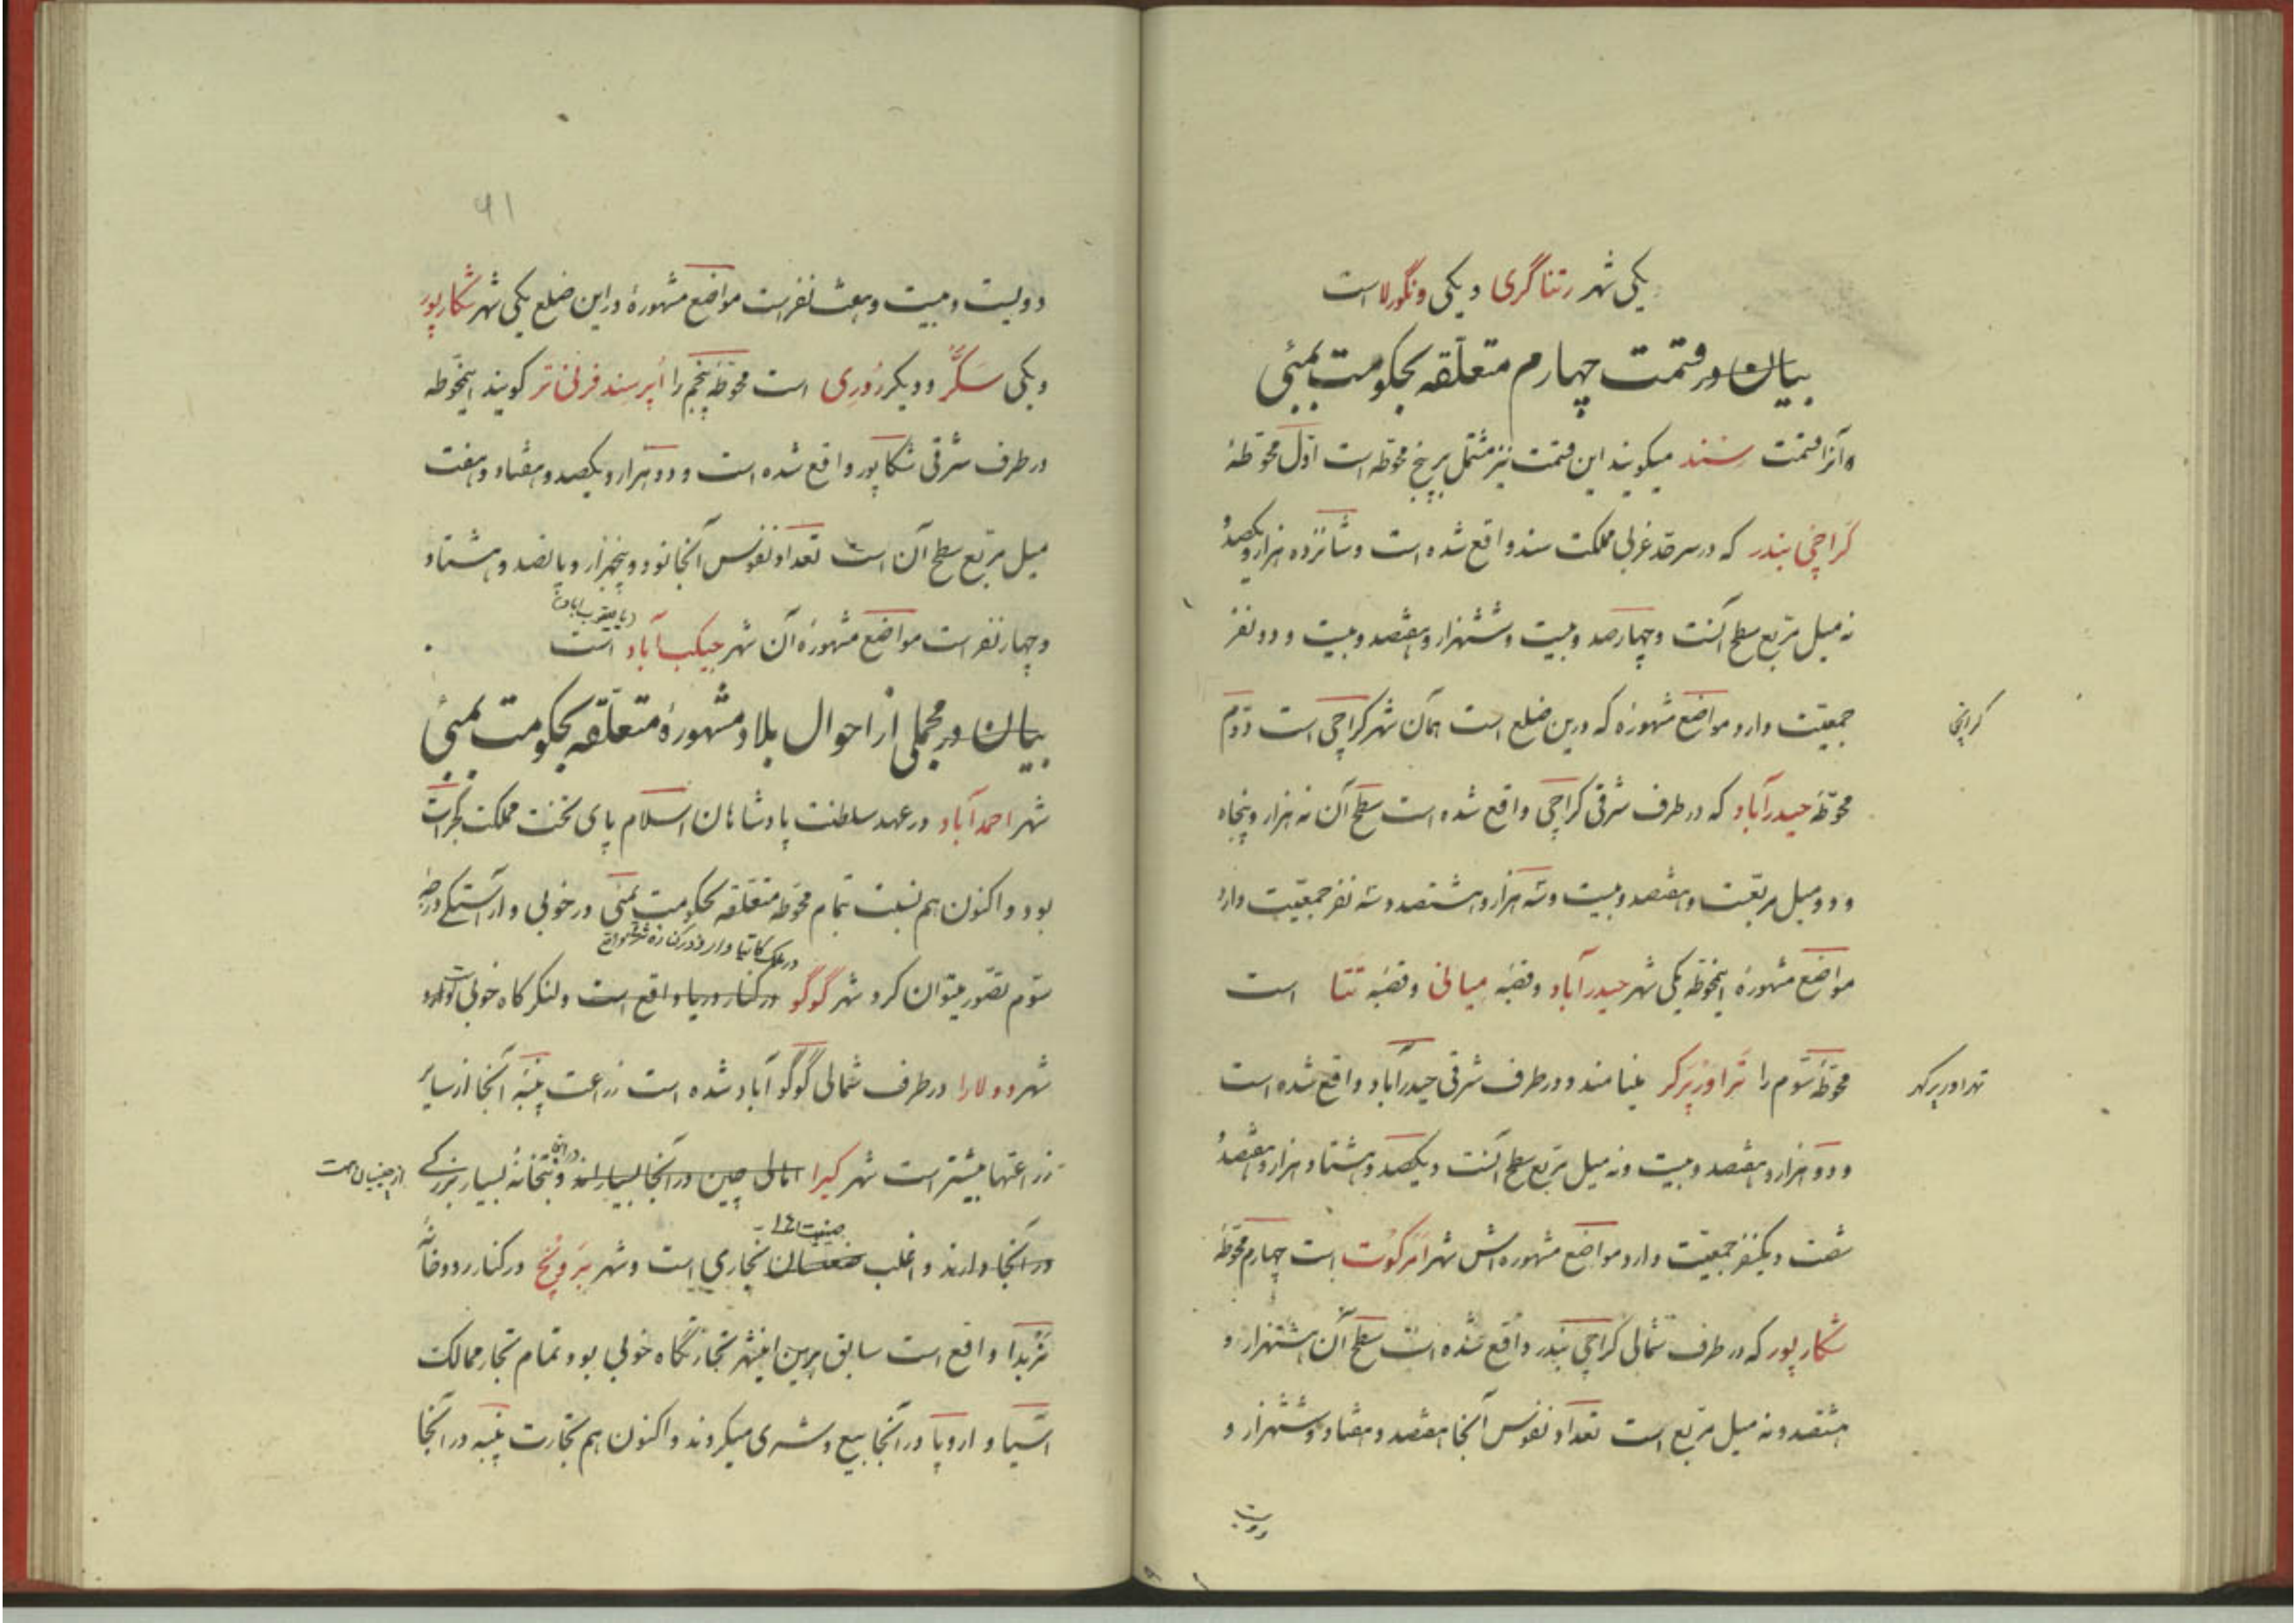 یکی شهر رتناگری و یکی ونگورلا است
بیان در قسمت چهارم متعلقه بحکومت بمبئی
و آنرا قسمت سند میگویند این قسمت نیز مشتمل بر پنج محوطه است اول محوطهٔ
کراچی بندر که در سرحد غربی مملکت سند واقع شده است و شانزده هزار و یکصد و
نه میل مربع سطح آنست و چهارصد و بیست و ششهزار و هفتصد و بیست و دو نفر
جمعیت دارد مواضع مشهوره که درین ضلع است همان شهر کراچی است دوم
کرانچی
محوطه حیدرآباد که در طرف شرقی کراچی واقع شده است سطح آن نه هزار و پنجاه
و دو میل مربعست و هفتصد و بیست و سه هزار و هشتصد و سه نفر جمعیت دارد
مواضع مشهورهٔ اینمحوطه یکی شهر حیدرآباد و قصبه میانی و قصبه تتا است
محوطه سوم را تراورپرکر مینامند و در طرف شرقی حیدرآباد واقع شده است
تهراورپرکهر
و دو هزار و هفتصد و بیست و نه میل مربع سطح آنست و یکصد و هشتاد هزار و هفتصد و
شصت و یکنفر جمعیت دارد مواضع مشهوره‌اش شهر امرکوت است چهارم محوطه
شکارپور که در طرف شمالی کراچی بندر واقع شده است سطح آن هشتهزار و
هشتصد و نه میل مربع است تعداد نفوس آنجا هفتصد و هفتاد و ششهزار و
دویست
۶۱
دویست و بیست و هفت نفر است مواضع مشهورهٔ در این ضلع یکی شهر شکارپور
و یکی سکر و دیگر روری است محوطه پنجم را اپر سند فرنتر گویند اینمحوطه
در طرف شرقی شکارپور واقع شده است و دو هزار و یکصد و هفتاد و هفت
میل مربع سطح آن است تعداد نفوس آنجا نود و پنجهزار و پانصد و هشتاد
و چهار نفر است مواضع مشهورهٔ آن شهر جیکب آباد است
(یا یعقوب اباد)
بیان در مجملی از احوال بلاد مشهورهٔ متعلقه بحکومت بمبئی
شهر احمدآباد در عهد سلطنت پادشاهان اسلام پای تخت مملکت گجرات
بود و اکنون هم نسبت بتمام محوطه متعلقه بحکومت بمبئی در خوبی و آراستگی درجه
سوم تصور میتوان کرد شهر گوگو در کنار دریا واقع است و لنگرگاه خوبی
شهر دولارا در طرف شمالی گوگو آباد شده است زراعت پنبه آنجا از سایر
زراعتها بیشتر است شهر کیرا اهالی چین در آنجا بسیارند و بتخانهٔ بسیار بزرگے
در آنجا
از چینیان است
در آنجا دارند و اغلب نجاری است و شهر بروچ در کنار رودخانهٔ
نربدا واقع است سابق برین اینشهر تجارتگاه خوبی بود تمام تجار ممالک
آسیا و اروپا در آنجا بیع و شری میکردند و اکنون هم تجارت پنبه در آنجا